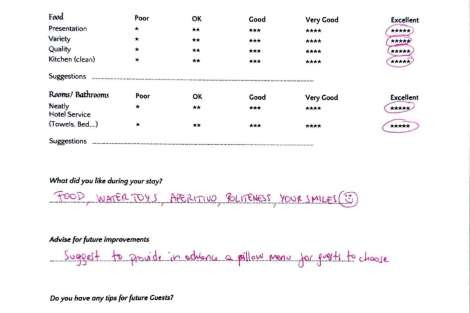 Food Poor OK Good Very Good Excellent
Presentation * ** *** **** *****
Variety * ** *** **** *****
Quality * ** *** **** *****
Kitchen (clean) * ** *** **** *****
Suggestions
Rooms/ Bathrooms Poor OK Good Very Good Excellent
Neatly * ** *** **** *****
Hotel Service
(Towels, Bed...) * ** *** **** *****
Suggestions
What did you like during your stay?
FOOD, WATER TOYS, APERITIVO, POLITENESS, YOUR SMILES
Advise for future improvements
Suggest to provide in advance a pillow menu for guests to choose
Do you have any tips for future Guests?